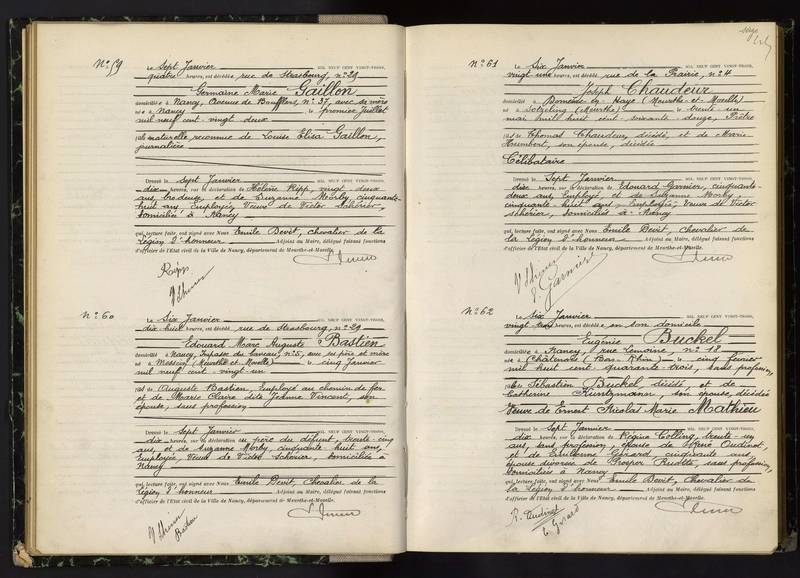 N° 59
Le Sept Janvier MIL NEUF CENT VINGT-TROIS,
quatre heures, est décédée rue de Strasbourg, n° 29
Germaine Marie Gaillon
domiciliée à Nancy, Avenue de Boufflers, n° 37, avec sa mère
née à Nancy le premier Juillet
mil neuf cent vingt deux
fille naturelle reconnue de Louise Elisa Gaillon,
journalière
Dressé le sept Janvier MIL NEUF CENT VINGT-TROIS,
dix heures, sur la déclaration de Hélène Ripp, vingt deux
ans, brodeuse, et de Suzanne Morby, cinquante-
huit ans, employée, Veuve de Victor
domiciliés à Nancy
qui, lecture faite, ont signé avec Nous Emile Devit, chevalier de la
Légion d'honneur Adjoint au Maire, délégué faisant fonctions
d'officier de l'Etat civil de la Ville de Nancy, département de Meurthe-et-Moselle.
Ripp
N° 60
Le Six Janvier MIL NEUF CENT VINGT-TROIS,
dix huit heures, est décédé rue de Strasbourg, n° 29
Edouard Marc Auguste Bastien
domicilié à Nancy, Impasse du n° 5, avec ses père et mère
né à Messein (Meurthe et Moselle) le cinq Janvier
mil neuf cent vingt-un
fils de Auguste Bastien, Employé au chemin de fer
et de Marie Claire dite Jeanne Vincent, son
épouse, sans profession
Dressé le Sept Janvier MIL NEUF CENT VINGT-TROIS,
dix heures, sur la déclaration du père du défunt, trente-cinq
ans, et de Suzanne Morby, cinquante huit ans,
Employée, Veuve de Victor domiciliés à
Nancy
qui, lecture faite, ont signé avec Nous Emile Devit, Chevalier de la
Légion d'honneur Adjoint au Maire, délégué faisant fonctions
d'officier de l'Etat civil de la Ville de Nancy, département de Meurthe-et-Moselle.
Bastien
N° 61
Le Six Janvier MIL NEUF CENT VINGT-TROIS,
vingt une heures, est décédé rue de la Prairie, n° 4
Joseph Chaudeur
domicilié à Domèvre en Haye (Meurthe et Moselle)
né à Sotzeling (Meurthe) le trente un
mai mil huit cent soixante douze, Prêtre
fils de Thomas Chaudeur, décédé, et de Marie
Humbert, son épouse, décédée
Célibataire
Dressé le Sept Janvier MIL NEUF CENT VINGT-TROIS,
dix heures, sur la déclaration de Edouard Garnier, cinquante-
deux ans, Employé et de Suzanne Morby,
cinquante huit ans, Employée, Veuve de Victor
domiciliés à Nancy
qui, lecture faite, ont signé avec Nous Emile Devit, Chevalier de
la Légion d'honneur Adjoint au Maire, délégué faisant fonctions
d'officier de l'Etat civil de la Ville de Nancy, département de Meurthe-et-Moselle.
Garnier
N° 62
Le Six Janvier MIL NEUF CENT VINGT-TROIS,
vingt trois heures, est décédée en son domicile
Eugénie Buckel
domiciliée à Nancy, rue Lemoine, n° 18
née à Châtenois (Bas-Rhin) le cinq février
mil huit cent quarante trois, sans profession,
fille de Sébastien Buckel décédé, et de
Catherine Kuntzmann, son épouse, décédée
Veuve de Ernest Nicolas Marie Mathieu
Dressé le Sept Janvier MIL NEUF CENT VINGT-TROIS,
dix heures, sur la déclaration de Régine Colling, trente-un
ans, sans profession, épouse de René Oudinot,
et de Emilienne Girard cinquante ans,
épouse divorcée de Prosper sans profession,
domiciliées à Nancy
qui, lecture faite, ont signé avec Nous Emile Devit, Chevalier de
la Légion d'honneur Adjoint au Maire, délégué faisant fonctions
d'officier de l'Etat civil de la Ville de Nancy, département de Meurthe-et-Moselle.
R. Oudinot
E. Girard